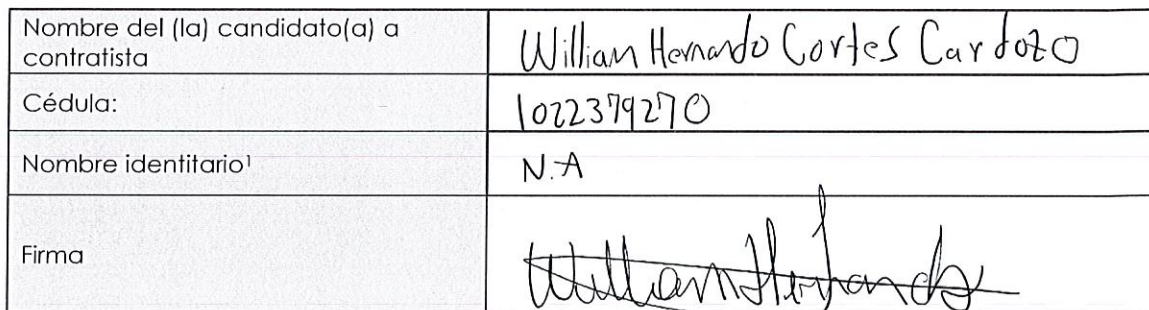 Nombre del (la) candidato(a) a
contratista
Willian Hernando Cortes Cardozo
Cédula:
1022379270
Nombre identitario¹
N.A
Firma
Willian Hernando